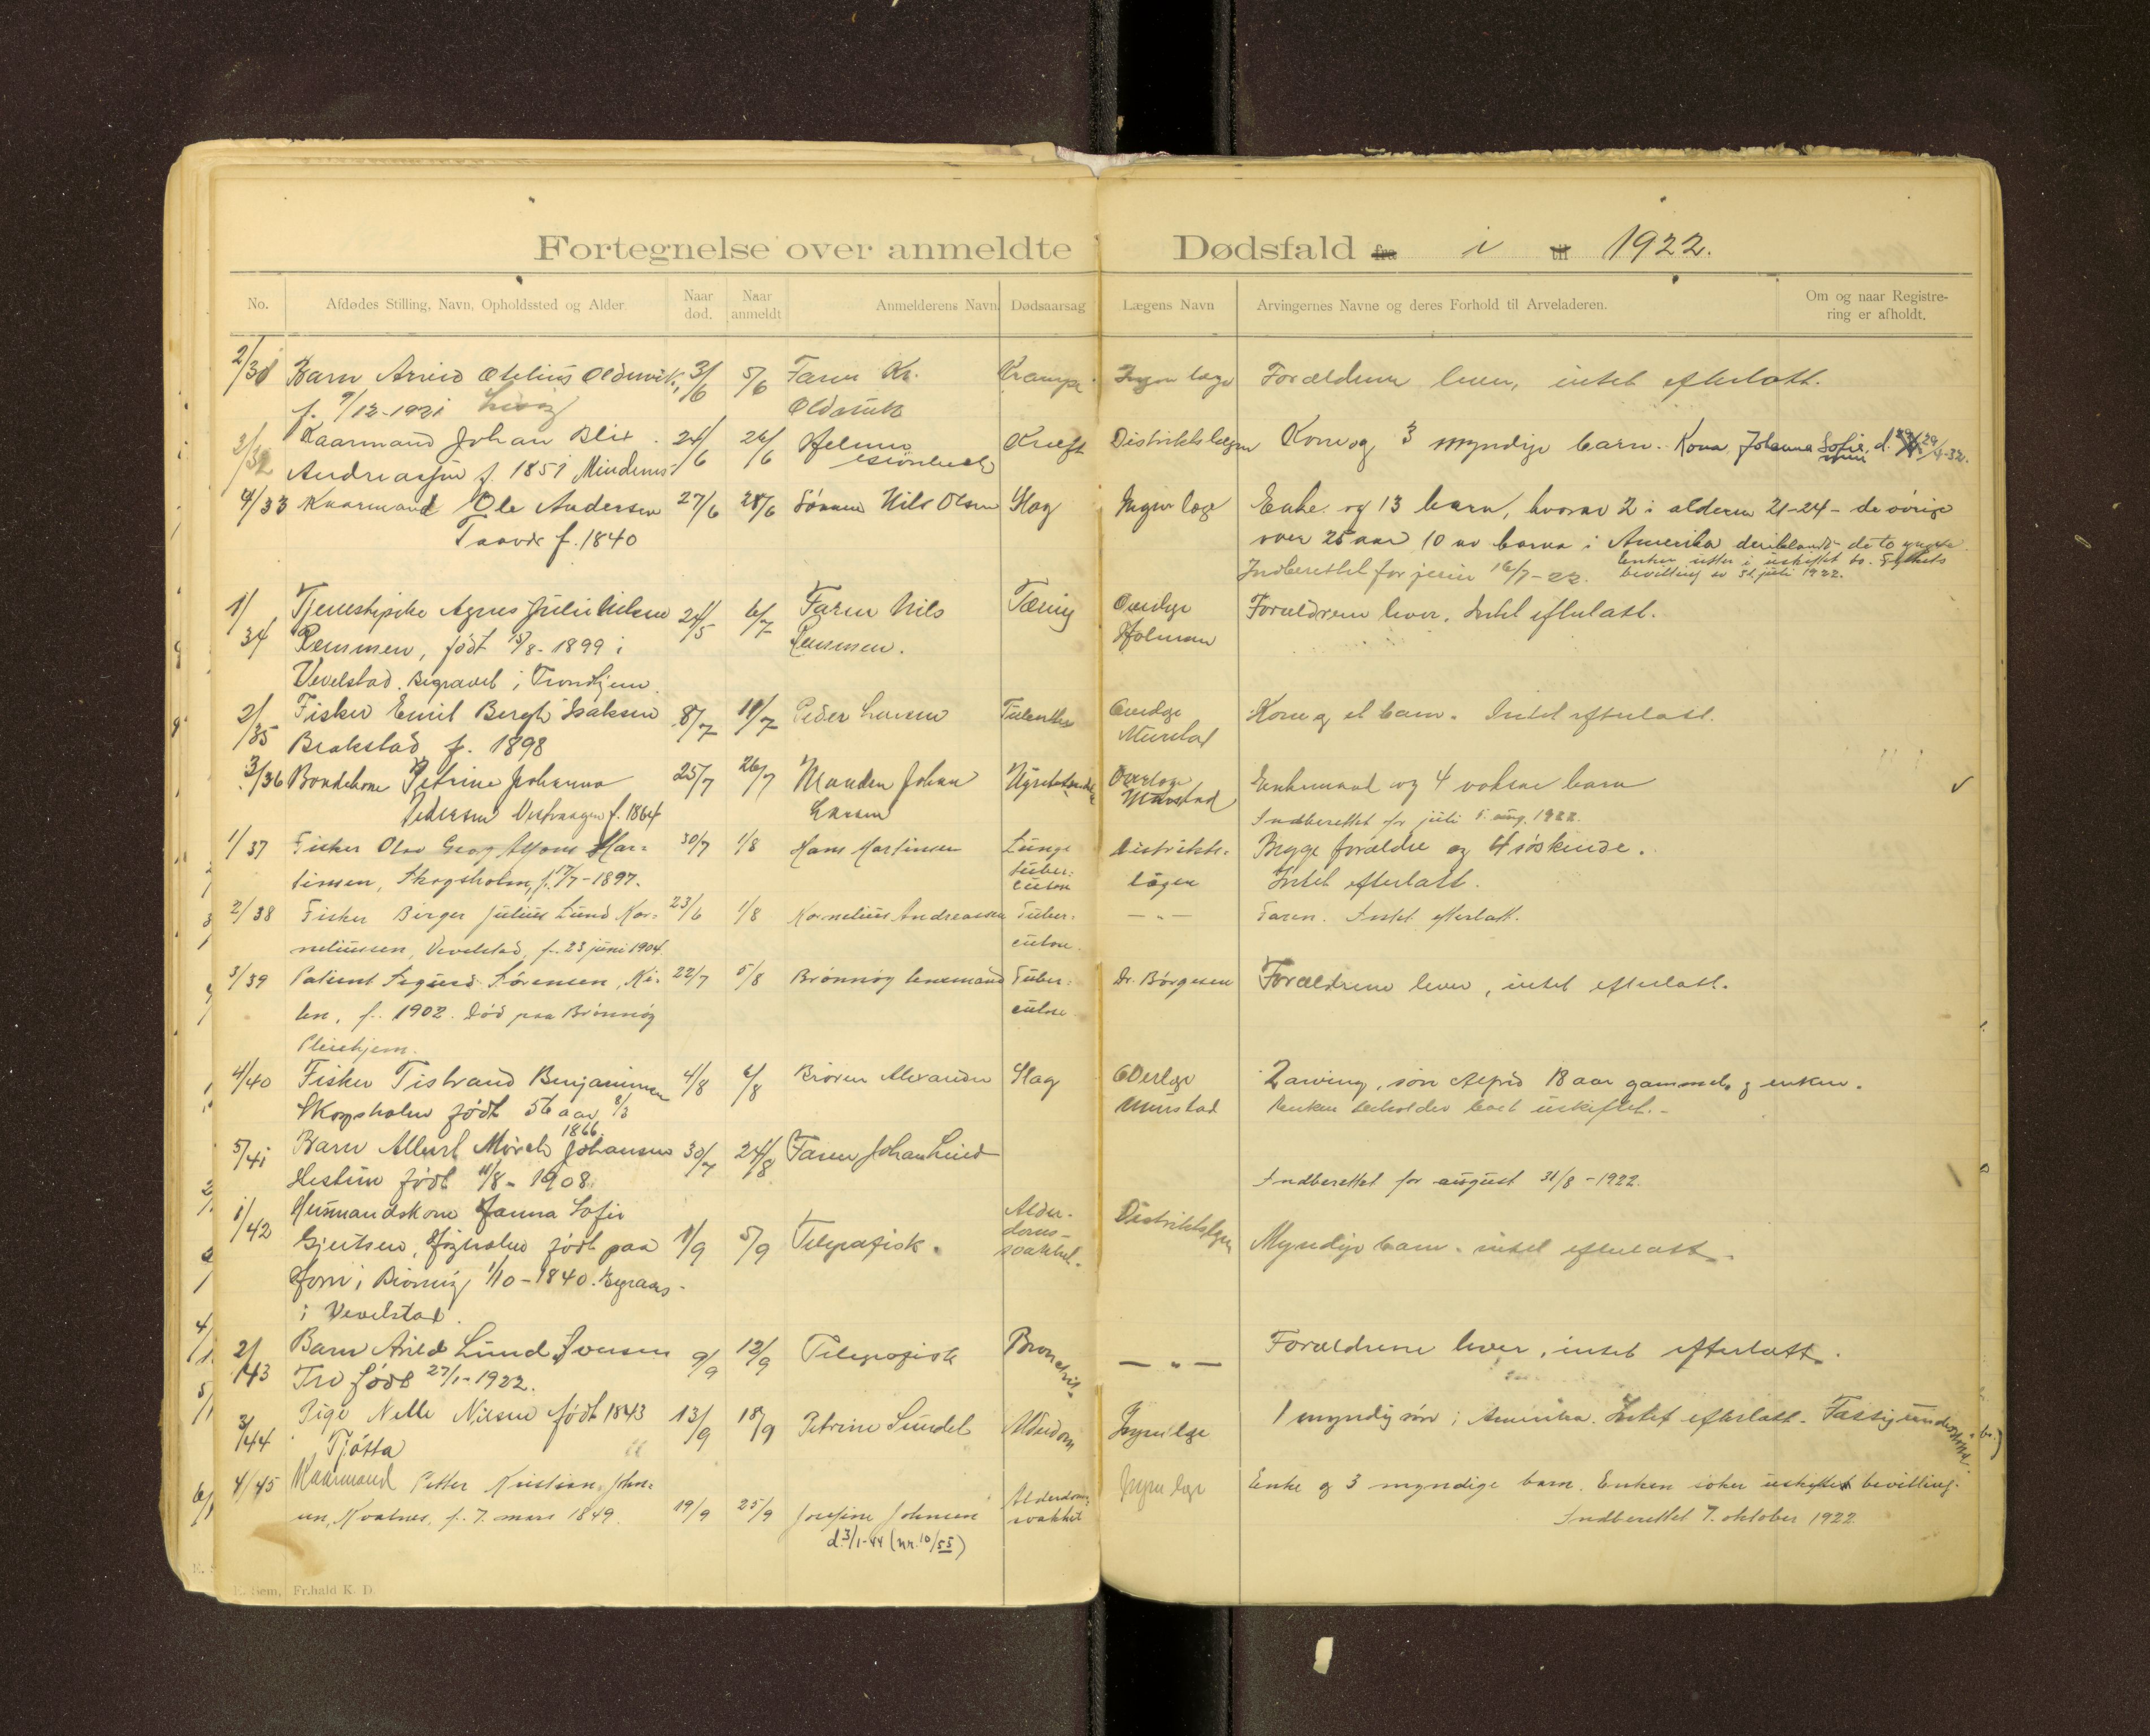 Fortegnelse over anmeldte Dødsfald fra i til 1922.
No. Afdødes Stilling, Navn, Opholdssted og Alder. Naar død. Naar anmeldt Anmelderens Navn Dødsaarsag Lægens Navn Arvingernes Navne og deres Forhold til Arveladeren. Om og naar Registrering er afholdt.
Barn Arvid Otelius Oldervik, 3/6 5/6 Faren Kr. Krampe Ingen læge Forældrene lever, intet efterlatt.
f. 9/12-1921 Oldervik
Kaarmand Johan Blix 24/6 26/6 Kræft Distriktslægen Kone og 3 myndige barn. Kona Johanna Sofie, d. 29/4-32.
Andreassen f. 1851
4/33 Kaarmand Ole Andersen 27/6 28/6 Sønnen Nils Olsen Slag Ingen læge Enke og 13 barn, hvorav 2 i alderen 21-24 - de øvrige
f. 1840 over 25 aar 10 av barna i Amerika deriblandt de to yngste.
Enken sitter i uskiftet bo. Fylkets
Indberettet for juni 16/7-22. bevilling av 31. juli 1922.
1/34 Tjenestepike Agnes Julie Nilsen 24/5 6/7 Faren Nils Tæring Overlæge Forældrene lever. Intet efterlatt.
Remmen, født 15/8-1899 i Remmen. Holmen
Vevelstad. Begravet i Trondhjem.
2/35 Fisker Emil Bergh Isaksen 8/7 11/7 Peder Larsen Overlæge Kone og et barn. Intet efterlatt.
Brakstad f. 1898
3/36 Bondekone Petrine Johanna 25/7 26/7 Manden Johan Overlæge Enkemand og 4 voksne barn
Pedersen f. 1864 Larsen Indberettet for juli 5. aug. 1922.
1/37 Fisker Olav Georg Alfons Mar= 30/7 1/8 Hans Martinsen Lunge Distrikts= Begge forældre og 4 søskende.
tinsen, Skogsholm, f. 17/7-1897. tuber= culose lægen Intet efterlatt.
2/38 Fisker Birger Julius Lund Kor= 23/6 1/8 Kornelius Andreassen Tuber= — " — Faren. Intet efterlatt.
neliussen, Vevelstad, f. 23 juni 1904. culose.
3/39 Patient Sigurd Sørensen, Ki= 22/7 5/8 Brønnøy lensmand Tuber= Dr. Børgesen Forældrene lever, intet efterlatt.
len, f. 1902. Død paa Brønnøy culose
Pleiehjem.
4/40 Fisker Tistrand Benjaminsen 4/8 6/8 Broren Alexander Slag Overlæge 2 arving, søn Alfred 18 aar gammel og enken.
Skogsholm født 56 aar 8/3 Enken beholder boet uskiftet.
1866.
5/41 Barn Albert Mørch Johansen 30/7 24/8 Faren Johan Lund
født 11/8-1908. Indberettet for august 31/8-1922.
1/42 Husmandskone Janna Sofie Alder-
Gjertsen, Høyholm født paa 1/9 5/9 Telegrafisk. doms- svakhet. Distriktslægen Myndige barn. intet efterlatt.
Horn i Brønnøy 1/10-1840. Begraves
i Vevelstad.
2/43 Barn Arild Lund Iversen 9/9 12/9 Telegrafisk — " — Forældrene lever, intet efterlatt.
Tro født 27/1-1922.
3/44 Pige Nelle Nilsen født 1843 13/9 18/9 Petrine Sundet Alderdom Ingen læge 1 myndig søn i Amerika. Intet efterlatt. Fattigunderstøttet.
Tjøtta
4/45 Kaarmand Petter Kristian John= Ingen læge Enke og 3 myndige barn. Enken søker uskiftet bevilling.
sen, Kvalnes, f. 7. mars 1849. 19/9 25/9 Josefine Johnsen Alderdoms= svakhet Indberettet 7. oktober 1922
d. 3/1-44 (nr. 10/55)
Sem, Fr.hald K. D.